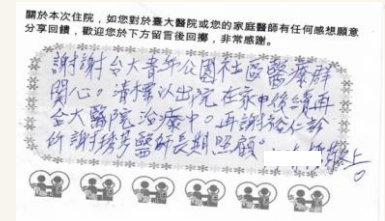 關於本次住院，如您對於臺大醫院或您的家庭醫師有任何感想願意
分享回饋，歡迎您於下方留言後回擲，非常感謝。
謝謝台大青年公園社區醫療群
關心。清標以出院在家中後續再
台大醫院治療中。再謝裕仁診
所謝醫師長期照顧。
上